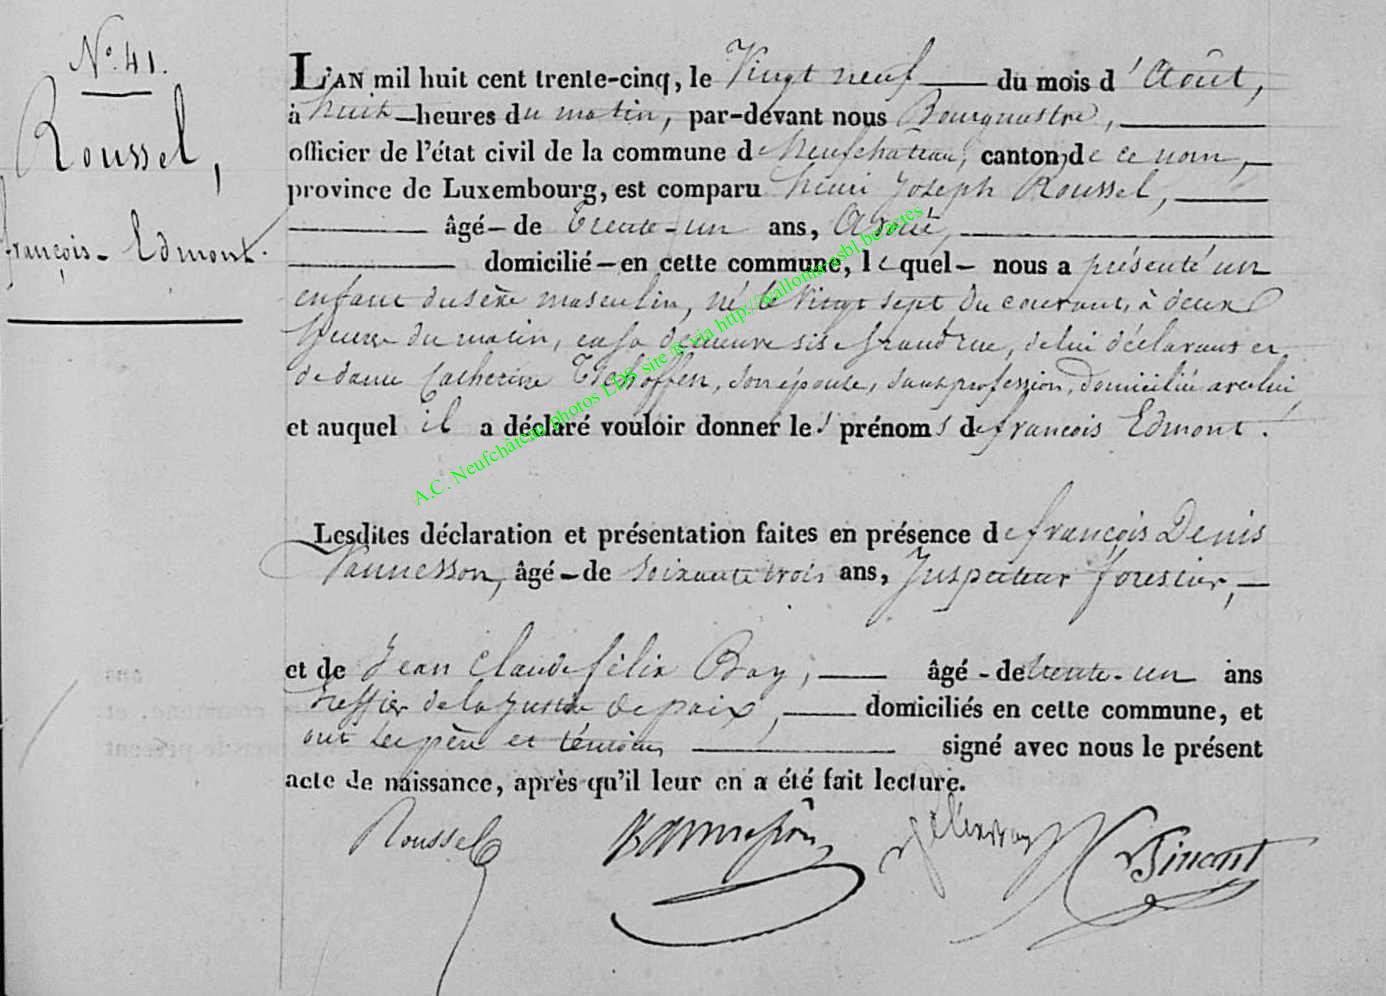 N.° 41.
Roussel,
françois-Edmont.
L'AN mil huit cent trente-cinq, le Vingt neuf du mois d'Août,
à huit heures du matin, par-devant nous Bourgmestre,
officier de l'état civil de la commune de Neufchâteau, canton de ce nom,
province de Luxembourg, est comparu henri Joseph Roussel,
âgé de trente-un ans, Avoué,
domicilié en cette commune, lequel nous a présenté un
enfant du sexe masculin, né le Vingt sept du courant, à deux
heures du matin, en sa demeure sise Grand'rue, de lui déclarant et
de dame Catherine Tschoffen, son épouse, sans profession, domiciliée avec lui,
et auquel il a déclaré vouloir donner les prénoms de françois Edmont.
Lesdites déclaration et présentation faites en présence de françois Denis
Vannesson, âgé de soixante trois ans, Inspecteur forestier,
et de Jean Claude félix Bay, âgé de trente-un ans
Greffier de la Justice de paix, domiciliés en cette commune, et
ont les père et témoins signé avec nous le présent
acte de naissance, après qu'il leur en a été fait lecture.
Roussel
A.C. Neufchâteau photos LDS site @ via http://wallonia-asbl.be/actes